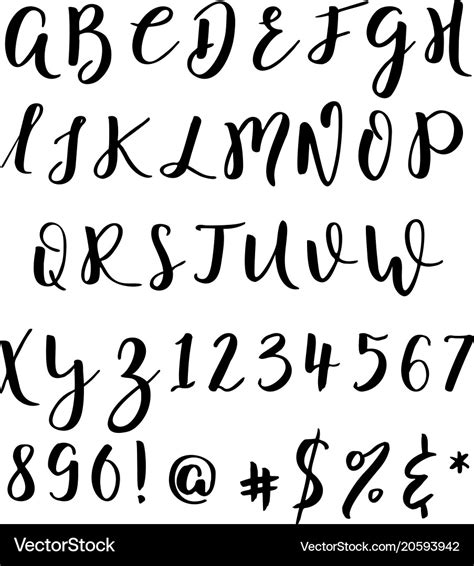 ABCDEFGH
IJKLMNOP
QRSTUVW
XYZ1234567
890!@#$%&*
VectorStock
VectorStock.com/20593942